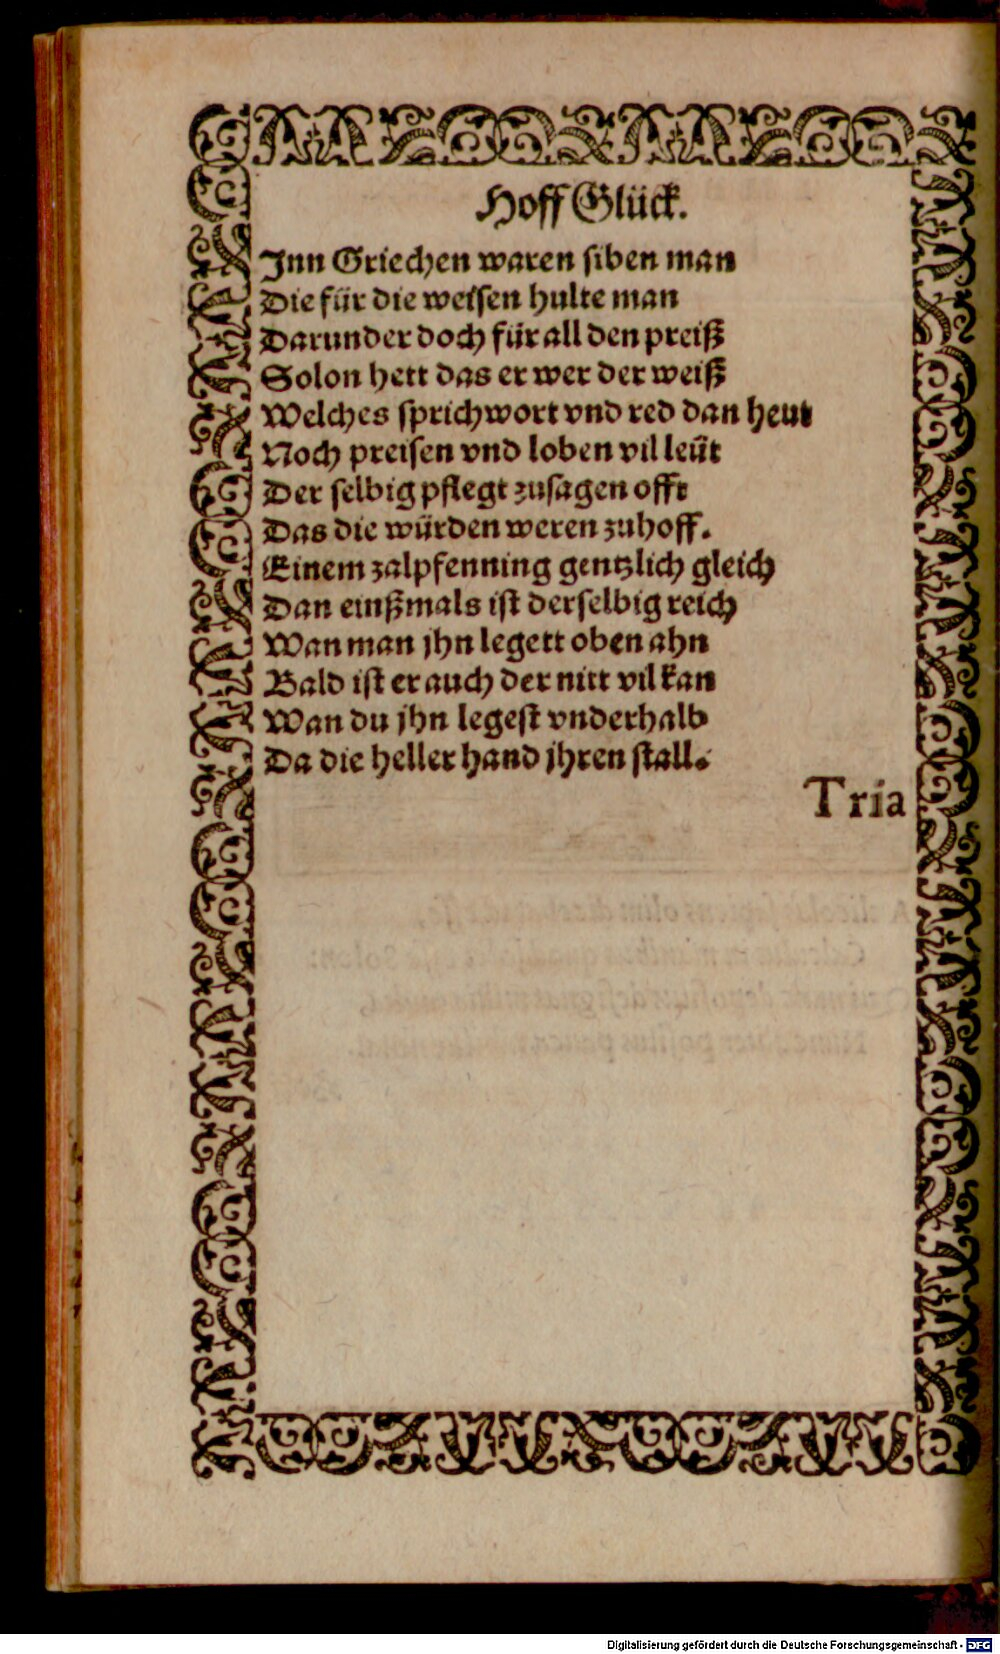 Hoff Glück.
Inn Griechen waren siben man
Die für die weisen hulte man
Darunder doch für all den preiß
Solon hett das er wer der weiß
Welches sprichwort vnd red dan heut
Noch preisen vnd loben vil leüt
Der selbig pflegt zusagen offt
Das die würden weren zuhoff.
Einem zalpfenning gentzlich gleich
Dan einßmals ist derselbig reich
Wan man jhn legett oben ahn
Bald ist er auch der nitt vil kan
Wan du jhn legest vnderhalb
Da die heller hand jhren stall.
Tria
Digitalisierung gefördert durch die Deutsche Forschungsgemeinschaft - DFG